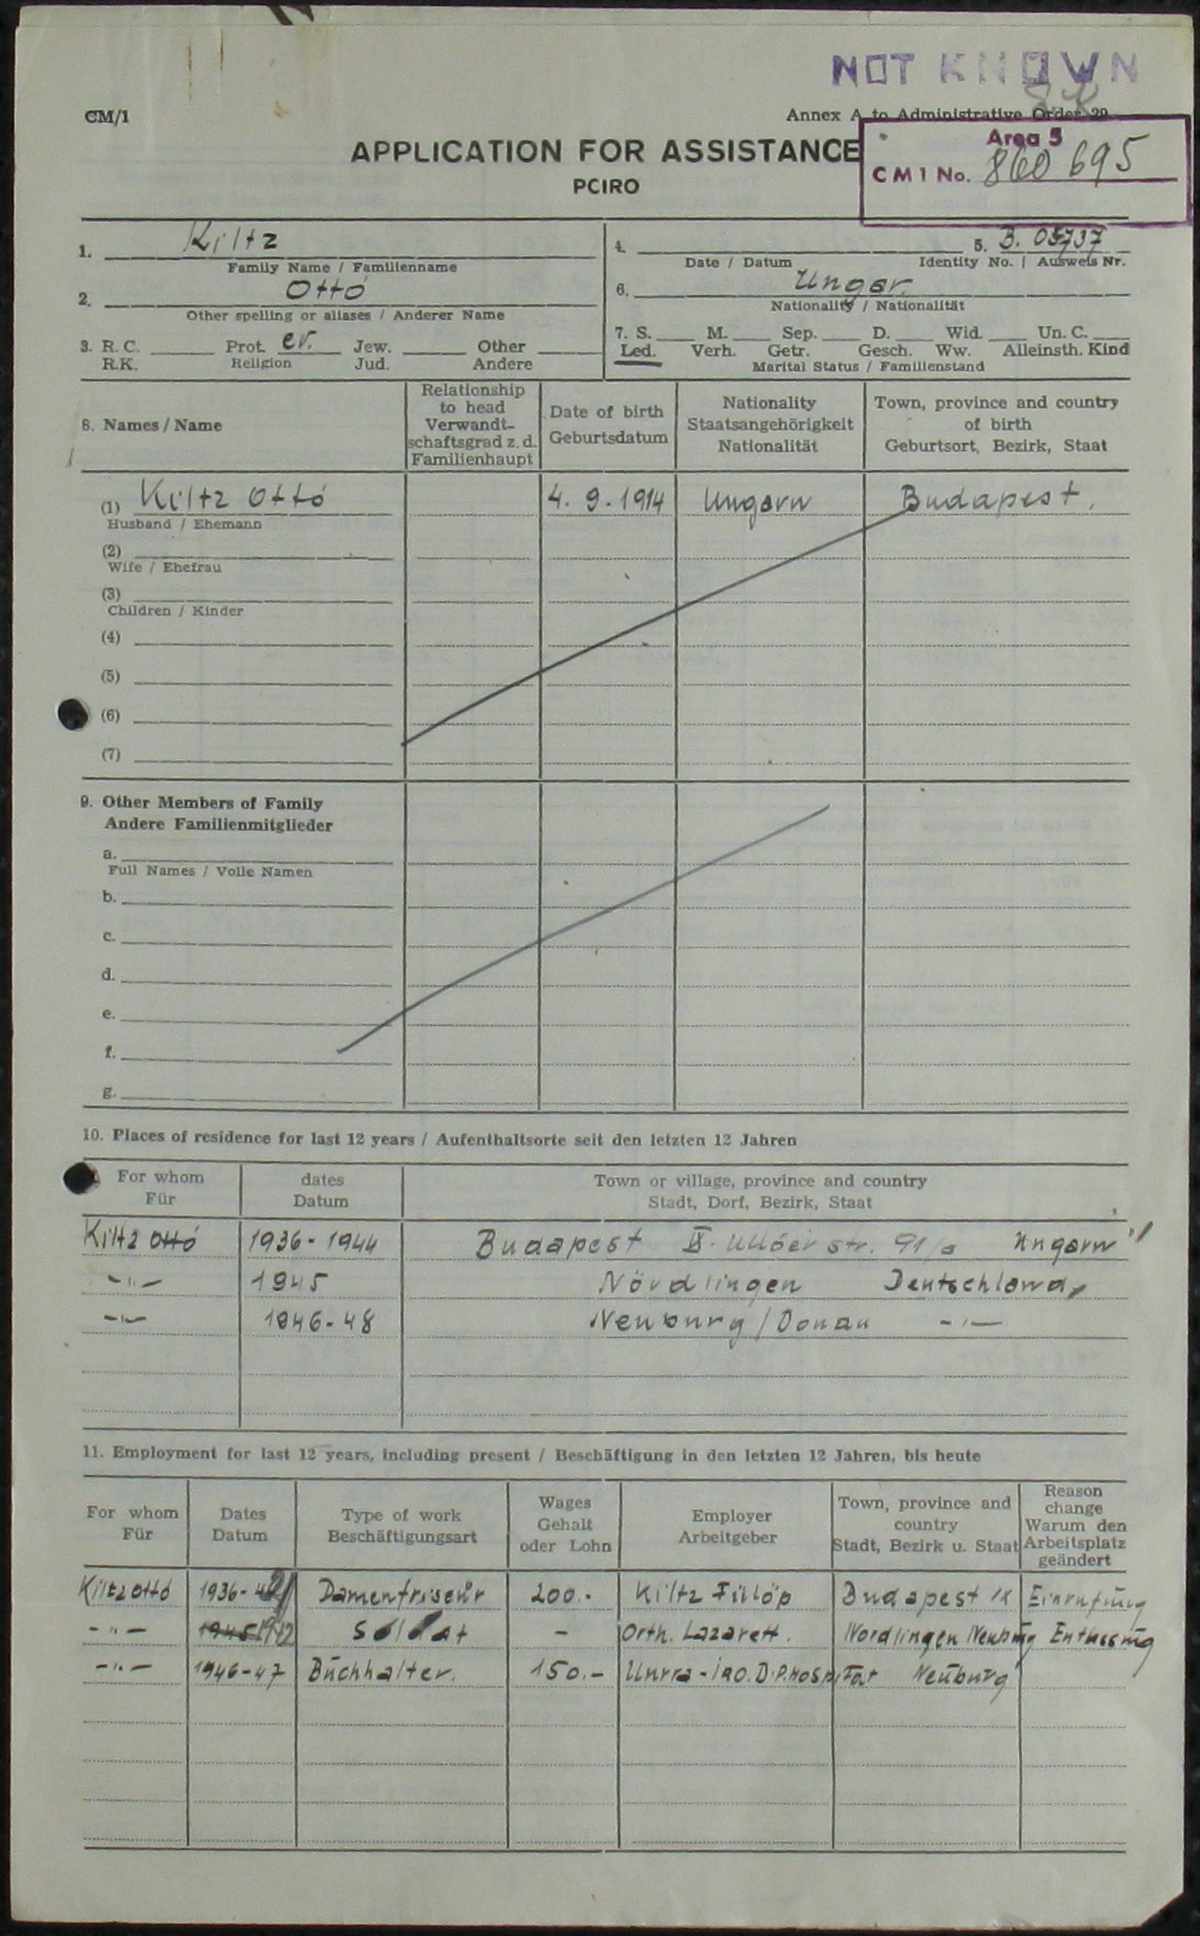 NOT KNOWN
CM/1
Annex A to Administrative Order 29
APPLICATION FOR ASSISTANCE
PCIRO
Area 5
CM1 No. 860 695
1. Kiltz
Family Name / Familienname
2. Ottó
Other spelling or aliases / Anderer Name
3. R. C. Prot. ev. Jew. Other
R.K. Religion Jud. Andere
4. 5. B. 03737
Date / Datum Identity No. | Ausweis Nr.
6. Ungar.
Nationality / Nationalität
7. S. M. Sep. D. Wid. Un. C.
Led. Verh. Getr. Gesch. Ww. Alleinsth. Kind
Marital Status / Familienstand
8. Names / Name
Relationship
to head
Verwandt-
schaftsgrad z. d.
Familienhaupt
Date of birth
Geburtsdatum
Nationality
Staatsangehörigkeit
Nationalität
Town, province and country
of birth
Geburtsort, Bezirk, Staat
(1) Kiltz Ottó 4. 9. 1914 Ungarn Budapest.
Husband / Ehemann
(2)
Wife / Ehefrau
(3)
Children / Kinder
(4)
(5)
(6)
(7)
9. Other Members of Family
Andere Familienmitglieder
a.
Full Names / Volle Namen
b.
c.
d.
e.
f.
g.
10. Places of residence for last 12 years / Aufenthaltsorte seit den letzten 12 Jahren
For whom
Für
dates
Datum
Town or village, province and country
Stadt, Dorf, Bezirk, Staat
Kiltz Ottó 1936-1944 Budapest IX. Üllöer str. 91/a Ungarn
-"- 1945 Nördlingen Deutschland
-"- 1946-48 Neuburg/Donau -"-
11. Employment for last 12 years, including present / Beschäftigung in den letzten 12 Jahren, bis heute
For whom
Für
Dates
Datum
Type of work
Beschäftigungsart
Wages
Gehalt
oder Lohn
Employer
Arbeitgeber
Town, province and
country
Stadt, Bezirk u. Staat
Reason
change
Warum den
Arbeitsplatz
geändert
Kiltz Ottó 1936- Damenfriseur 200.- Kiltz Fülöp Budapest IX Einrufung
-"- Soldat - Orth. Lazarett. Nördlingen Neuburg Entlassung
-"- 1946-47 Buchhalter. 150.- Unrra-iRO. D.P. Hosp. Neuburg